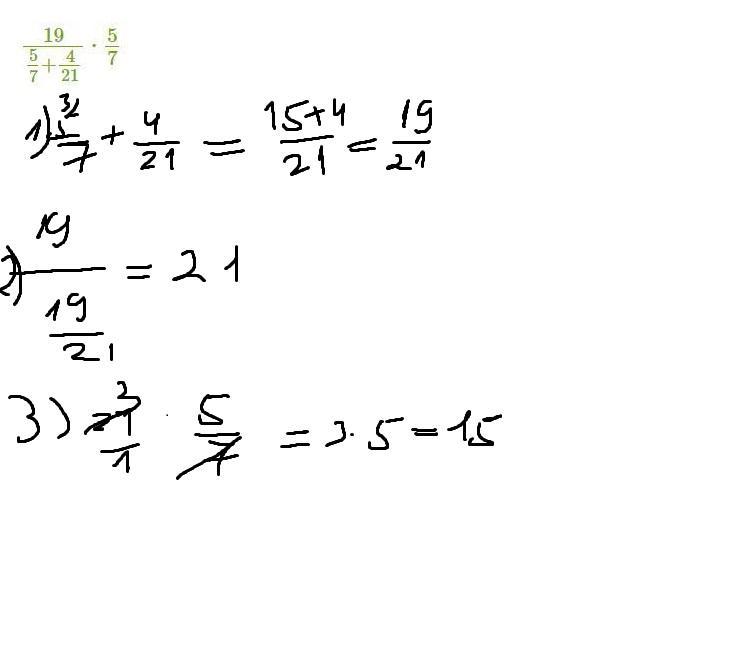 19/(5/7 + 4/21) · 5/7
1) 5/7 + 4/21 = (15+4)/21 = 19/21
2) 19/(19/21) = 21
3) 21/1 · 5/7 = 3·5=15